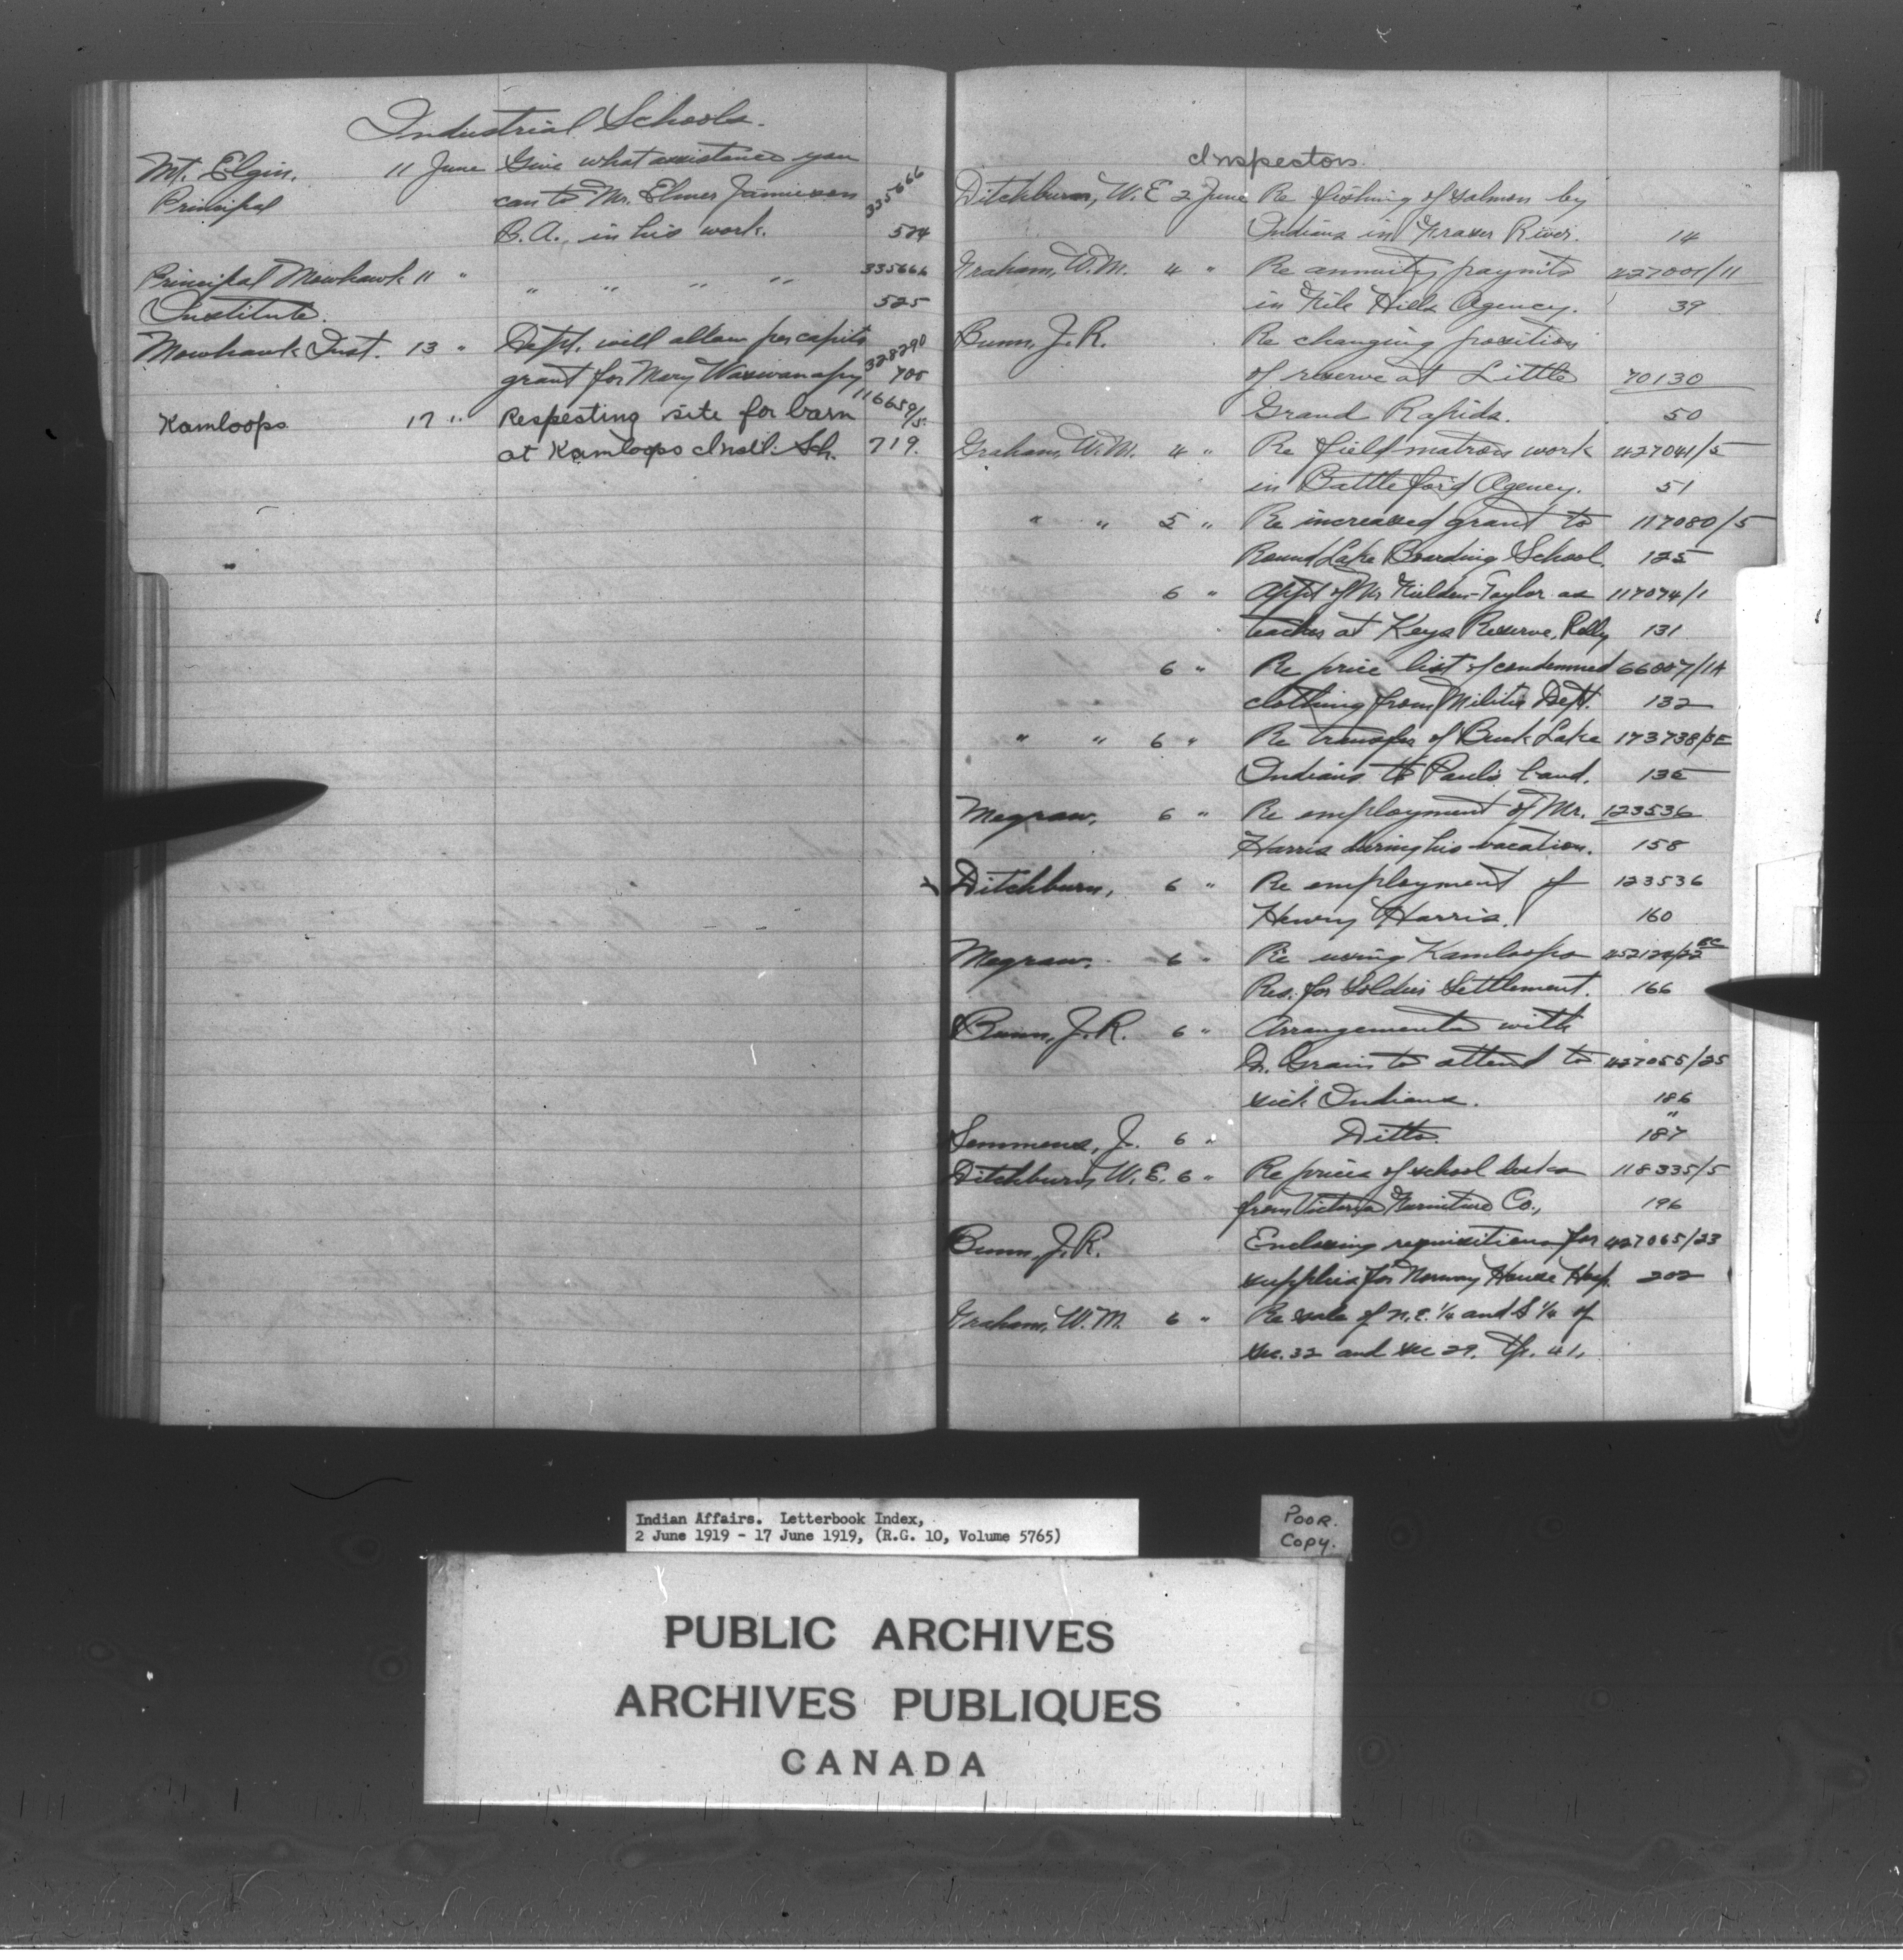 Industrial Schools.
Mt. Elgin. 11 June Give what assistance you
Principal can to Mr. Elmer Jamieson 335666
B.A., in his work. 524
Principal Mowhawk 11 " " " " " 335666
Institute. 525
Mowhawk Inst. 13 " Dept. will allow per capita 328290
grant for Mary 705
Kamloops 17 " Respecting site for barn 116659/5
at Kamloops Indl. Sch. 719.
Inspectors.
Ditchburn, W.E. 2 June Re fishing of salmon by
Indians in Fraser River. 14
Graham, W.M. 4 " Re annuity paymts 427001/11
in File Hills Agency. 39
Bunn, J.R. Re changing position
of reserve at Little 70130
Grand Rapids. 50
Graham, W.M. 4 " Re field matron work 427041/5
in Battleford Agency. 51
" " 5 " Re increased grant to 117080/5
Round Lake Boarding School. 125
6 " Appt of Mr Fielden-Taylor as 117074/1
teacher at Keys Reserve, Pelly 131
6 " Re price list of condemned 66007/1A
clothing from Militia Dept. 132
" " 6 " Re transfer of Buck Lake 173738/3E
Indians to Paul's band. 135
Megraw. 6 " Re employment of Mr. 123536
Harris during his vacation. 158
Ditchburn, 6 " Re employment of 123536
Henry Harris. 160
Megraw. 6 " Re using Kamloops
Res. for Soldier Settlement. 166
Bunn, J.R. 6 " Arrangements with
Dr. Grain to attend to 427055/25
sick Indians. 186
Semmens, J. 6 " Ditto. " 187
Ditchburn, W.E. 6 " Re prices of school desks 118335/5
from Victoria Furniture Co., 196
Bunn, J.R. Enclosing requisitions for 427065/23
supplies for Norway House Hosp. 202
Graham, W.M. 6 " Re sale of N.E. 1/4 and S 1/4 of
Sec. 32 and Sec 29. Tp. 41,
Indian Affairs. Letterbook Index,
2 June 1919 - 17 June 1919, (R.G. 10, Volume 5765)
Poor.
Copy.
PUBLIC ARCHIVES
ARCHIVES PUBLIQUES
CANADA